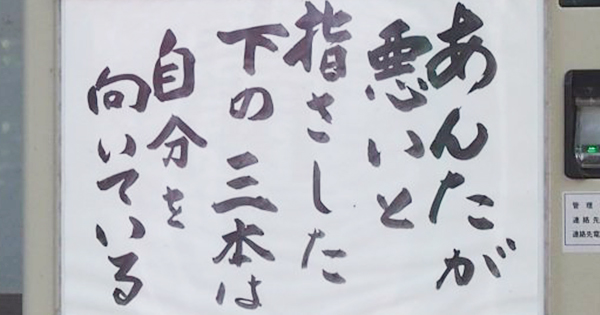 あんたが
悪いと
指さした
下の三本は
自分を
向いている
管理
連絡先
連絡先電